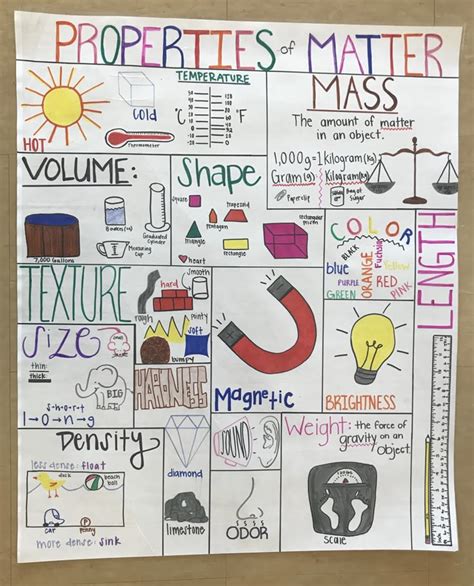 PROPERTIES of MATTER
TEMPERATURE
HOT
cold
Thermometer
°C
°F
MASS
The amount of matter
in an object.
1,000g=1kilogram(kg)
Gram(g)
Kilogram(kg)
Paperclip
Bag of
Sugar
VOLUME:
7,000 Gallons
Beaker(mL)
Measuring
cup
Graduated
Cylinder
Shape
square
trapezoid
rectangular
prism
triangle
pentagon
rectangle
heart
COLOR
BLACK
blue
PURPLE
GREEN
ORANGE
Fuchsia
Yellow
RED
PINK
LENGTH
TEXTURE
hard
smooth
rough
pointy
soft
bumpy
Size
thin:
thick:
BIG
s-h-o-r-t
l→o→n→g
HARDNESS
diamond
limestone
Magnetic
BRIGHTNESS
Density
less dense: float
duck
beach
ball
CAR
PENNY
more dense: sink
SOUND
ODOR
Weight: the force of
gravity on an
object.
scale